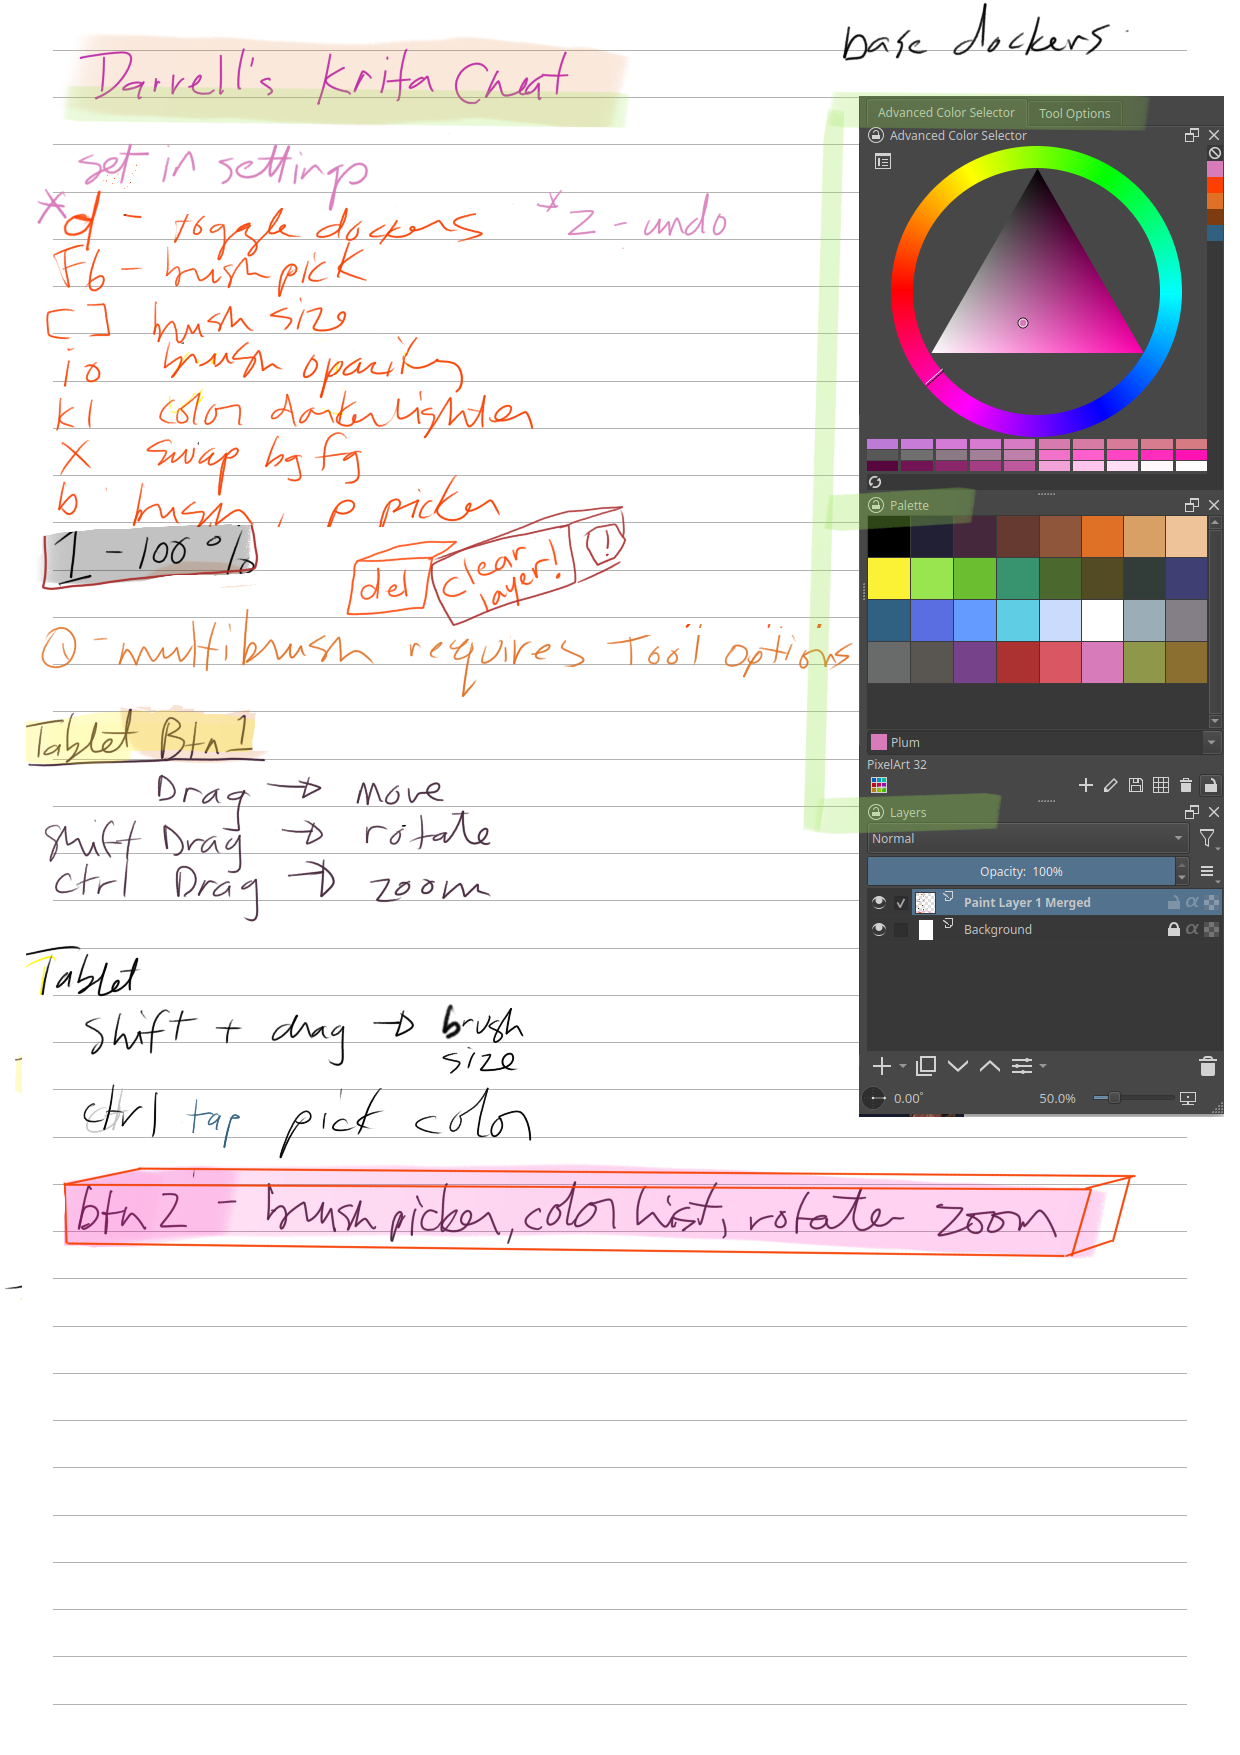 base dockers
Darrell's Krita Cheat
set in settings
* d - toggle dockers
* z - undo
F6 - brush pick
[ ] brush size
i o brush opacity
k l color darker lighter
X swap bg fg
b brush, p picker
1 - 100%
del
clear layer!
!
Q - multibrush requires Tool options
Tablet Btn 1
Drag → move
shift Drag → rotate
ctrl Drag → zoom
Tablet
shift + drag → brush
size
ctrl tap pick color
btn 2 - brush picker, color hist, rotate zoom
Advanced Color Selector
Tool Options
Advanced Color Selector
Palette
Plum
PixelArt 32
Layers
Normal
Opacity: 100%
Paint Layer 1 Merged
Background
0.00°
50.0%